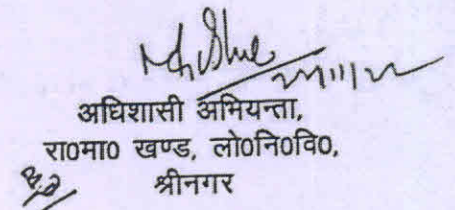 अधिशासी अभियन्ता,
रा०मा० खण्ड, लो०नि०वि०,
श्रीनगर